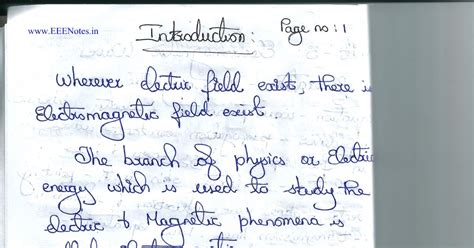 www.EEENotes.in
Introduction: Page no: 1
Wherever electric field exist, there is
Electromagnetic field exist.
The branch of physics or Electric
energy which is used to study the
electric & Magnetic phenomena is